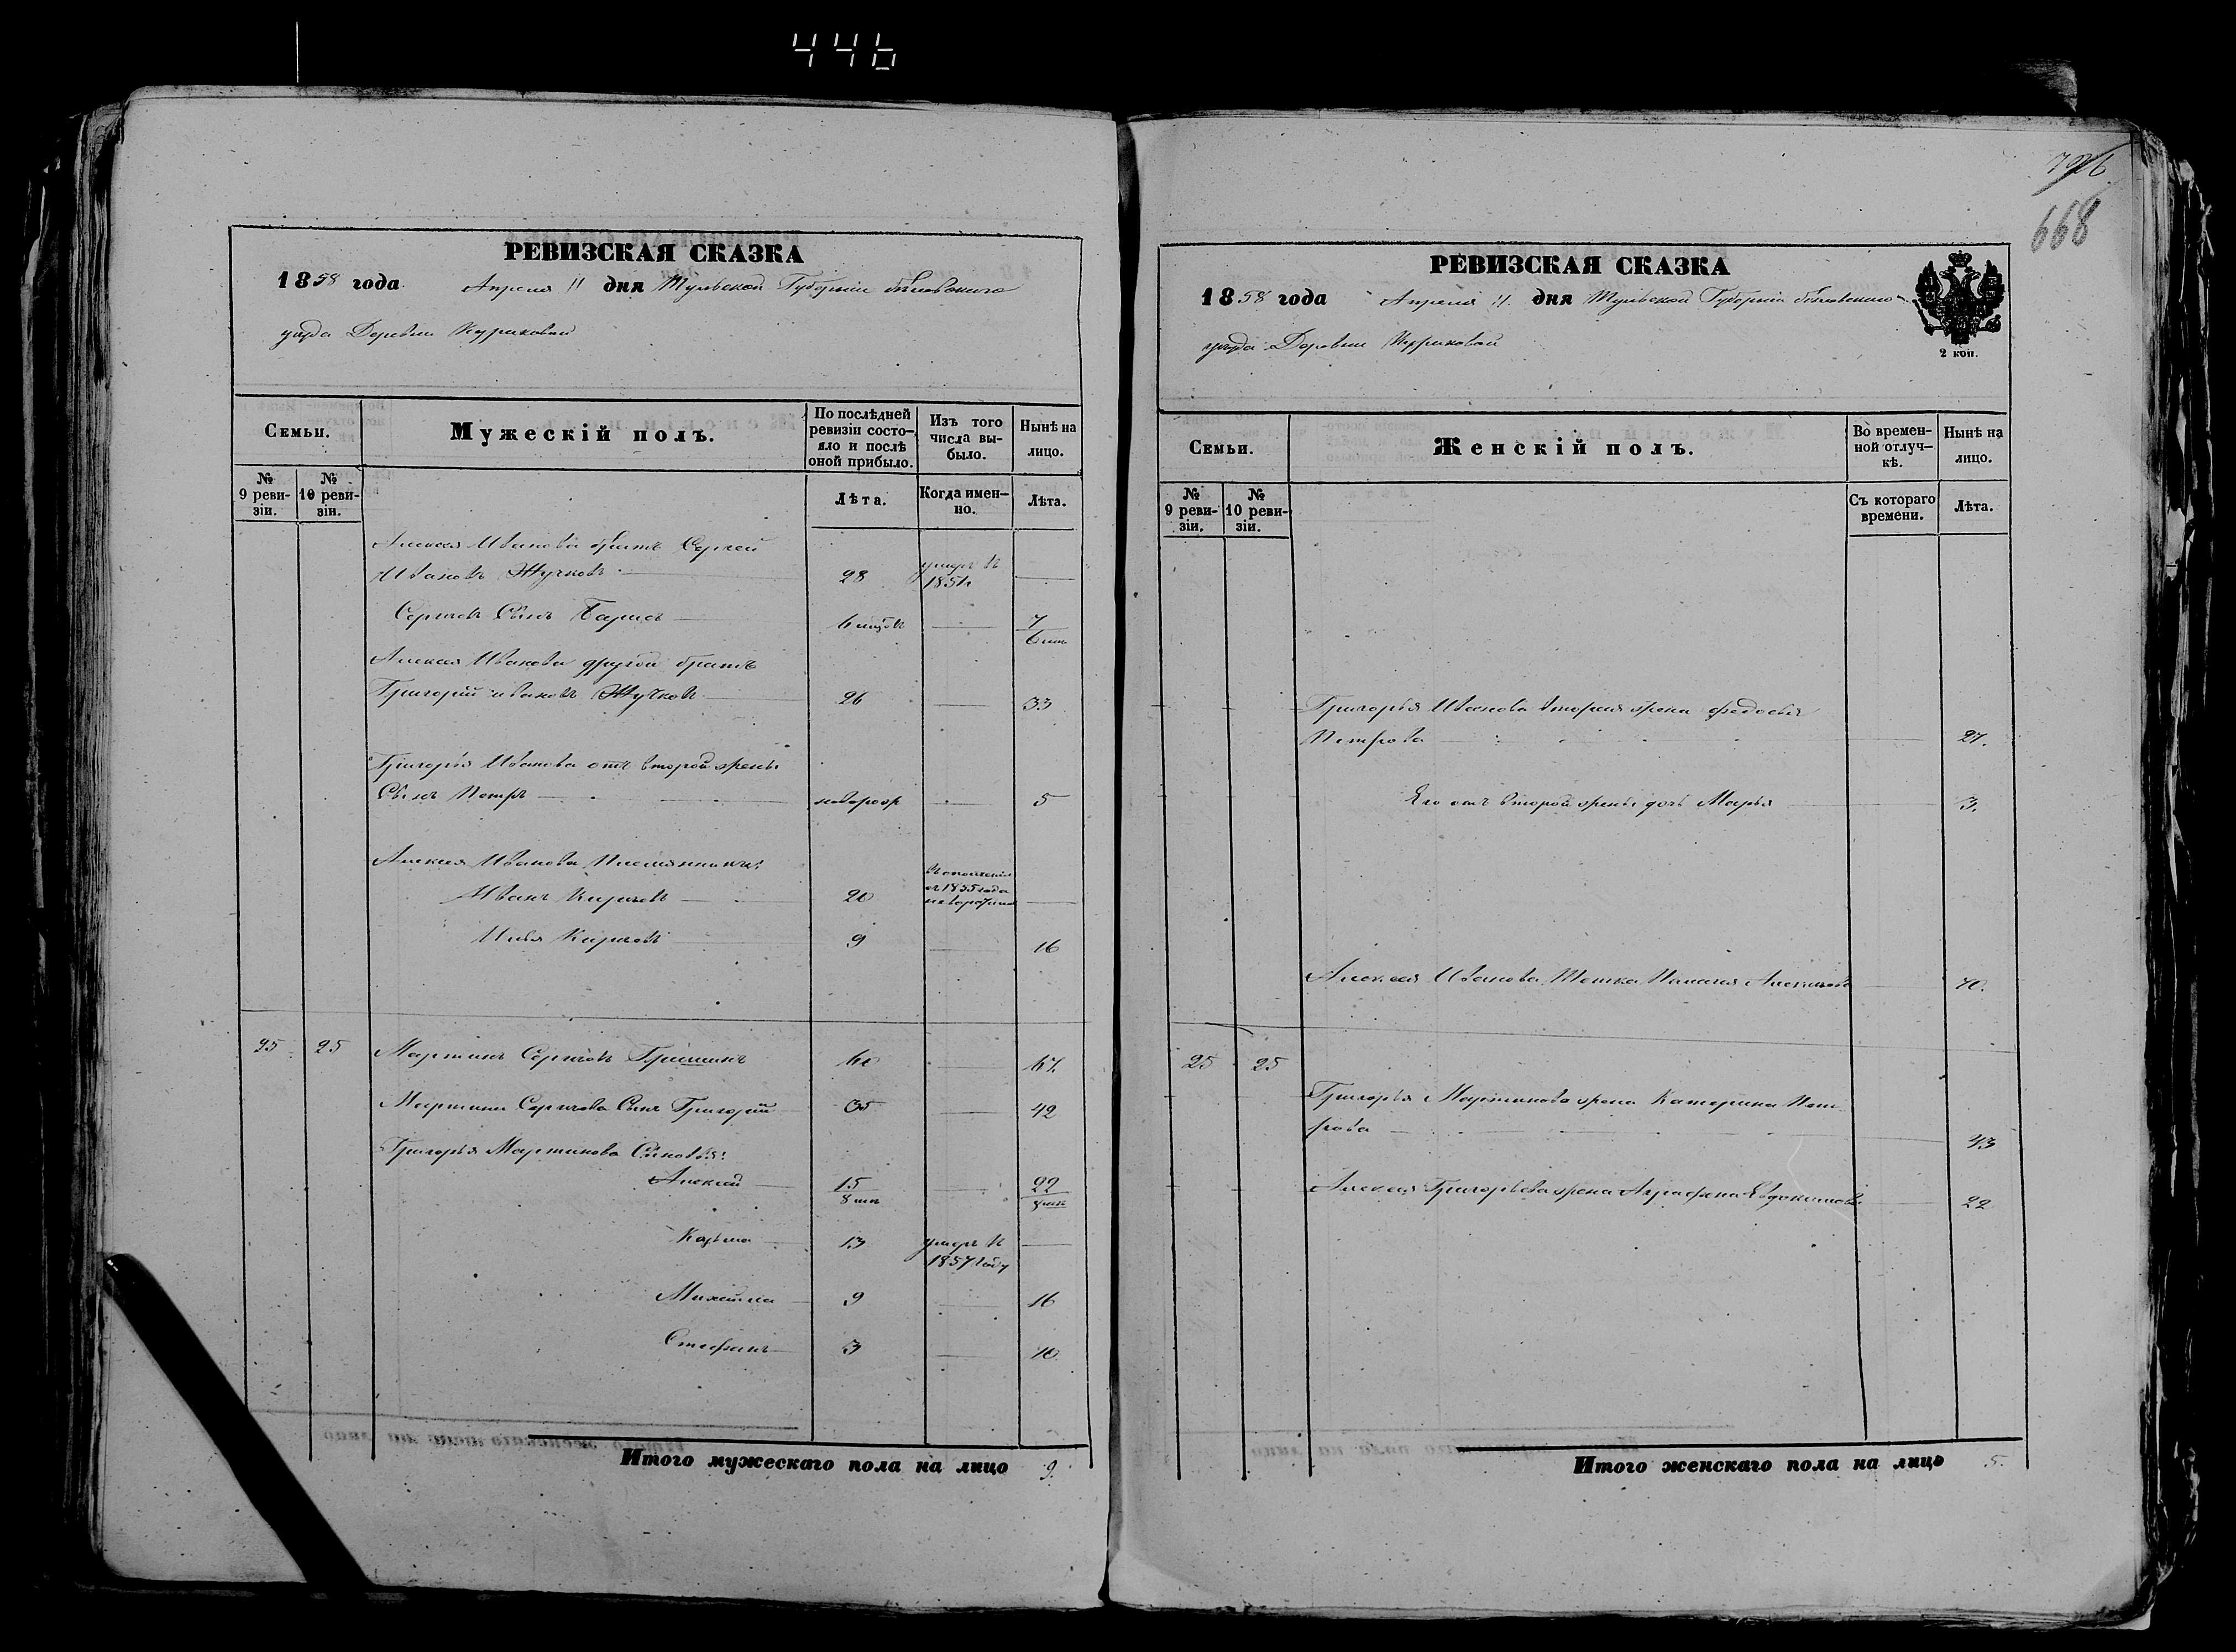 446
726
668
РЕВИЗСКАЯ СКАЗКА
1858 года Апреля 11 дня Тульской Губерніи бѣлевскаго
уезда Деревни Куриковой
Семьи.
Мужескій полъ.
По послѣдней ревизіи состо-
яло и послѣ
оной прибыло.
Изъ того
числа вы-
было.
Нынѣ на
лицо.
№
9 реви-
зіи.
№
10 реви-
зіи.
Лѣта.
Когда имен-
но.
Лѣта.
Алексея Иванова братъ Сергей
Ивановъ Жучковъ 28 умеръ въ 1851
Сергеевъ Сынъ Борисъ 6 7/6
Алексея Иванова другой братъ
Григорий ивановъ Жучковъ 26 33
Григорья Иванова отъ второй жены
Сынъ Петръ новорож 5
Алексея Иванова Племянники:
Иванъ Киреевъ 20 1855 года
Илья Киреевъ 9 16
25 25 Мартинъ Сергеевъ Гришинъ 60 67
Мартина Сергеева Сынъ Григорий 35 42
Григорья Мартинова Сыновья:
Алексей 15/8 22/8
Козьма 13 умеръ въ
1857 году
Михайла 9 16
Стефанъ 3 10
Итого мужескаго пола на лицо 9.
РЕВИЗСКАЯ СКАЗКА
1858 года Апреля 11 дня Тульской Губерніи бѣлевскаго
уезда Деревни Куриковой
2 коп.
Семьи.
Женскій полъ.
Во времен-
ной отлуч-
кѣ.
Нынѣ на
лицо.
№
9 реви-
зіи.
№
10 реви-
зіи.
Съ котораго
времени.
Лѣта.
Григорья Иванова вторая жена Федосья
Петрова 27.
Его отъ второй жены дочь Марья 3.
Алексея Иванова Тетка Пелагея 70.
25 25
Григорья Мартинова жена Катерина Пет-
рова 43
Алексея Григорьева жена Аграфена Евдокимова 22
Итого женскаго пола на лицо 5.